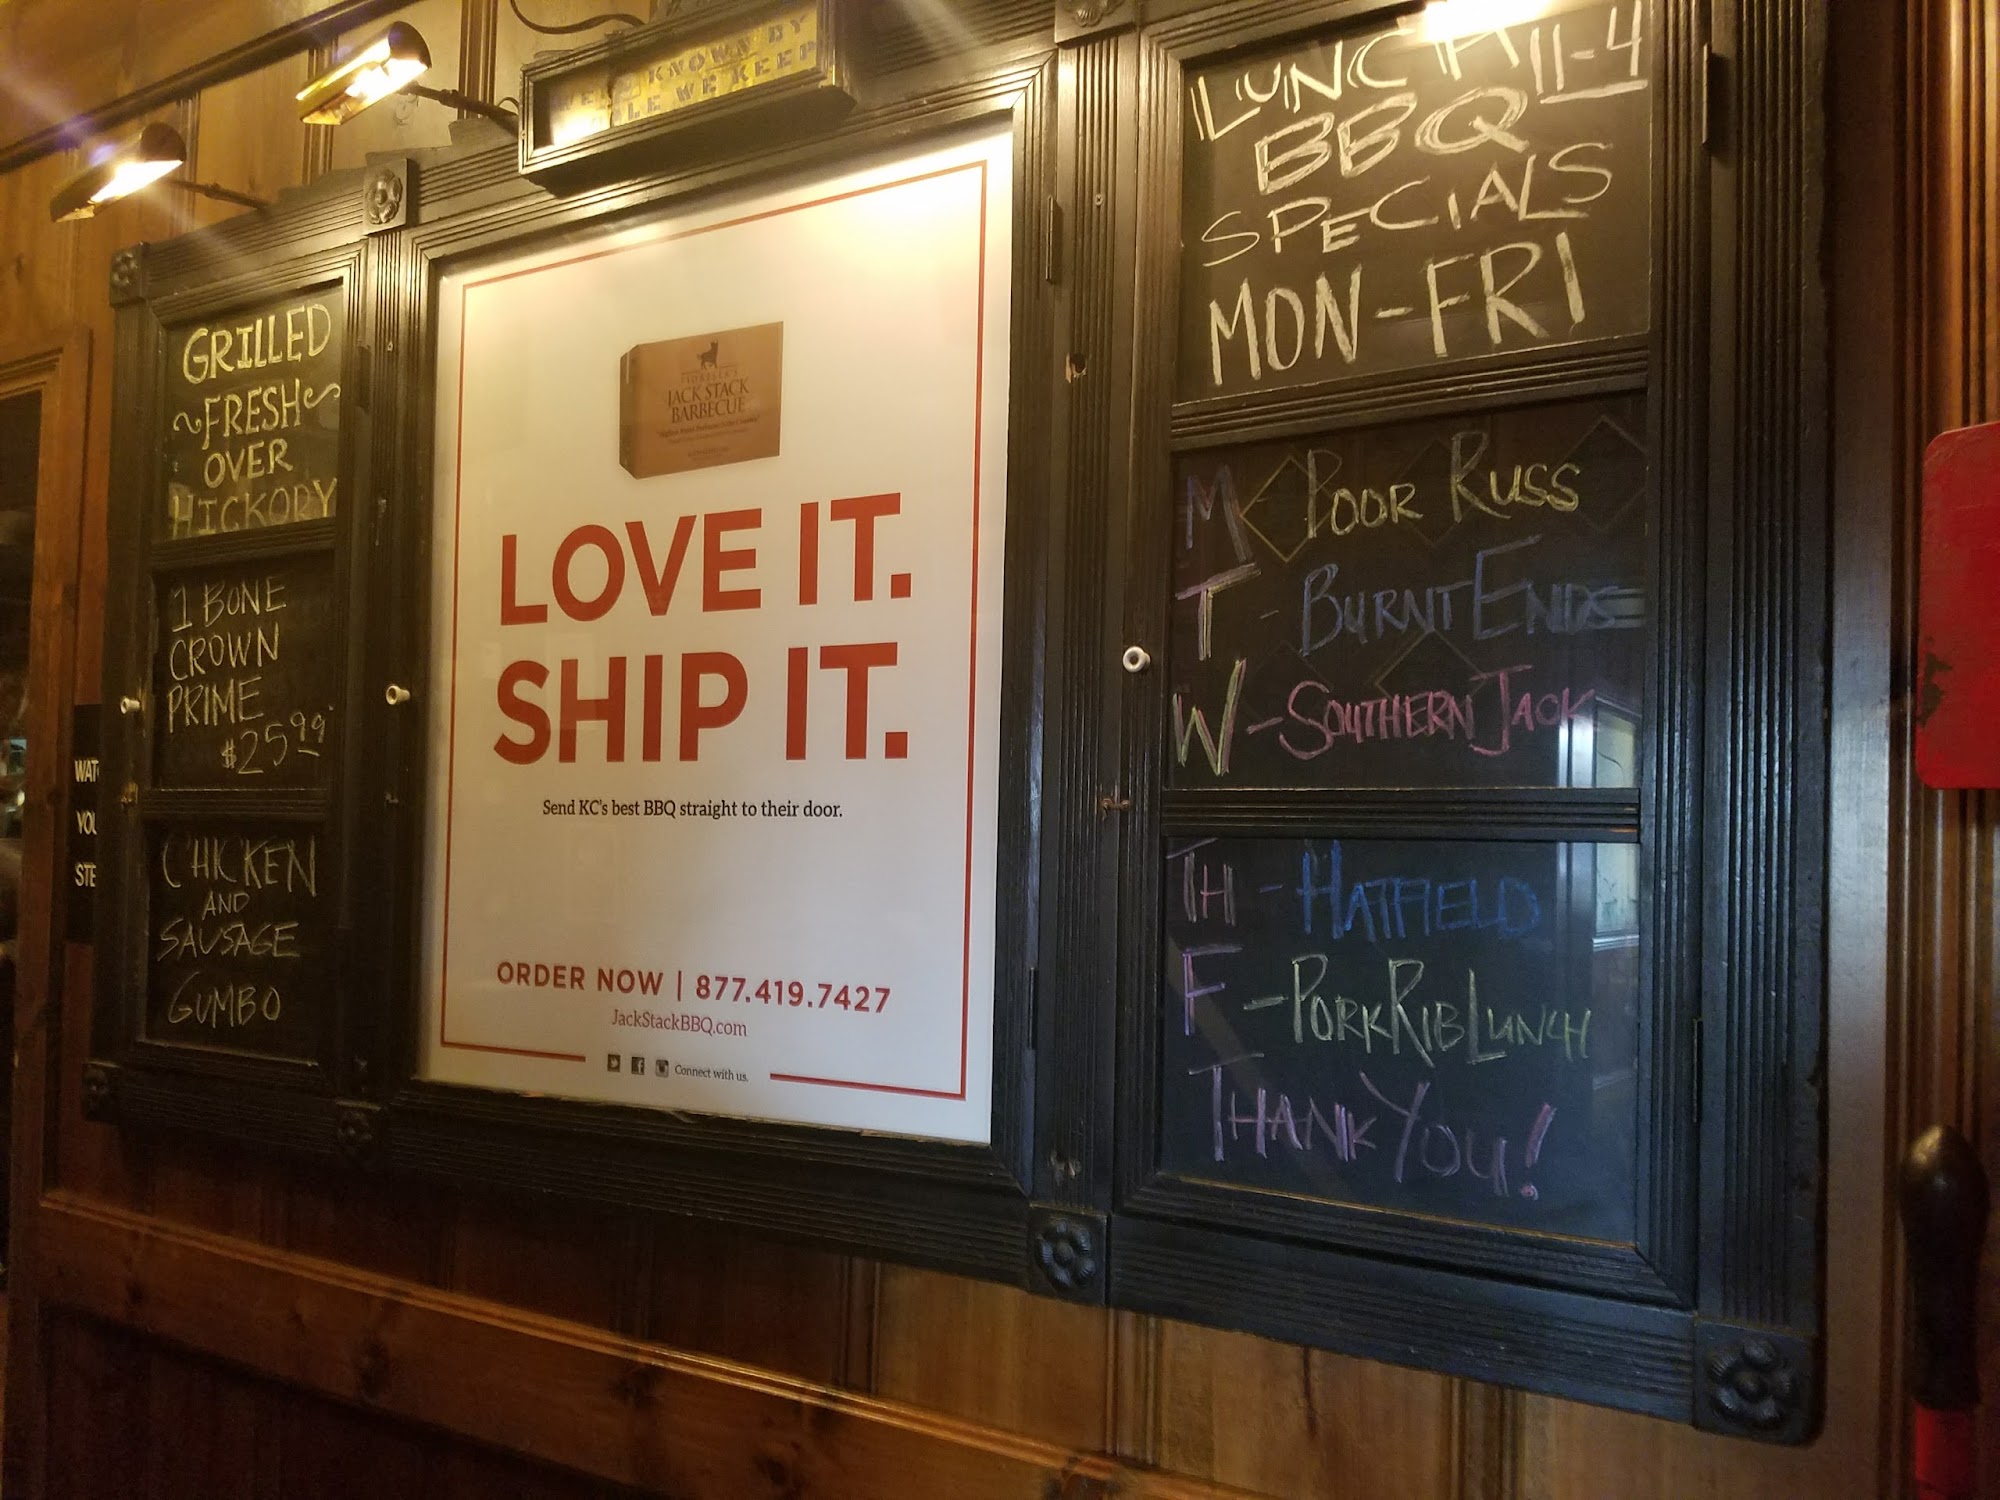 GRILLED
~FRESH~
OVER
HICKORY
1 BONE
CROWN
PRIME
$25.99
CHICKEN
AND
SAUSAGE
GUMBO
WAT
YOU
STE
KNOWN BY
WE KEEP
JACK STACK
BARBECUE
LOVE IT.
SHIP IT.
Send KC's best BBQ straight to their door.
ORDER NOW | 877.419.7427
JackStackBBQ.com
Connect with us.
LUNCH 11-4
BBQ
SPECIALS
MON-FRI
M POOR RUSS
T - BURNT ENDS
W - SOUTHERN JACK
TH - HATFIELD
F - PORK RIB LUNCH
THANK YOU!